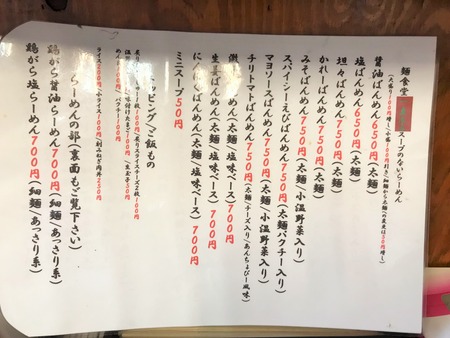 麺食堂
スープのないらーめん
醤油ばんめん650円(太麺)
塩ばんめん650円(太麺)
坦々ばんめん750円(太麺)
かれーばんめん750円(太麺)
みそばんめん750円(太麺/小温野菜入り)
スパイシーえびばんめん750円(太麺パクチー入り)
マヨソースばんめん750円(太麺/小温野菜入り)
チリトマトばんめん750円(太麺/チーズ入り/あんちょびー風味)
めん(太麺/塩味ベース)700円
生姜ばんめん(太麺/塩味ベース)700円
にんにくばんめん(太麺/塩味ベース)700円
ミニスープ50円
ッピング/ご飯もの
味付けたまご100円
生玉子50円
パクチー100円
ライス200円
小ライス100円
らーめんの部(裏面もご覧下さい)
鶏がら醤油らーめん700円(細麺/あっさり系)
鶏がら塩らーめん700円(細麺/あっさり系)